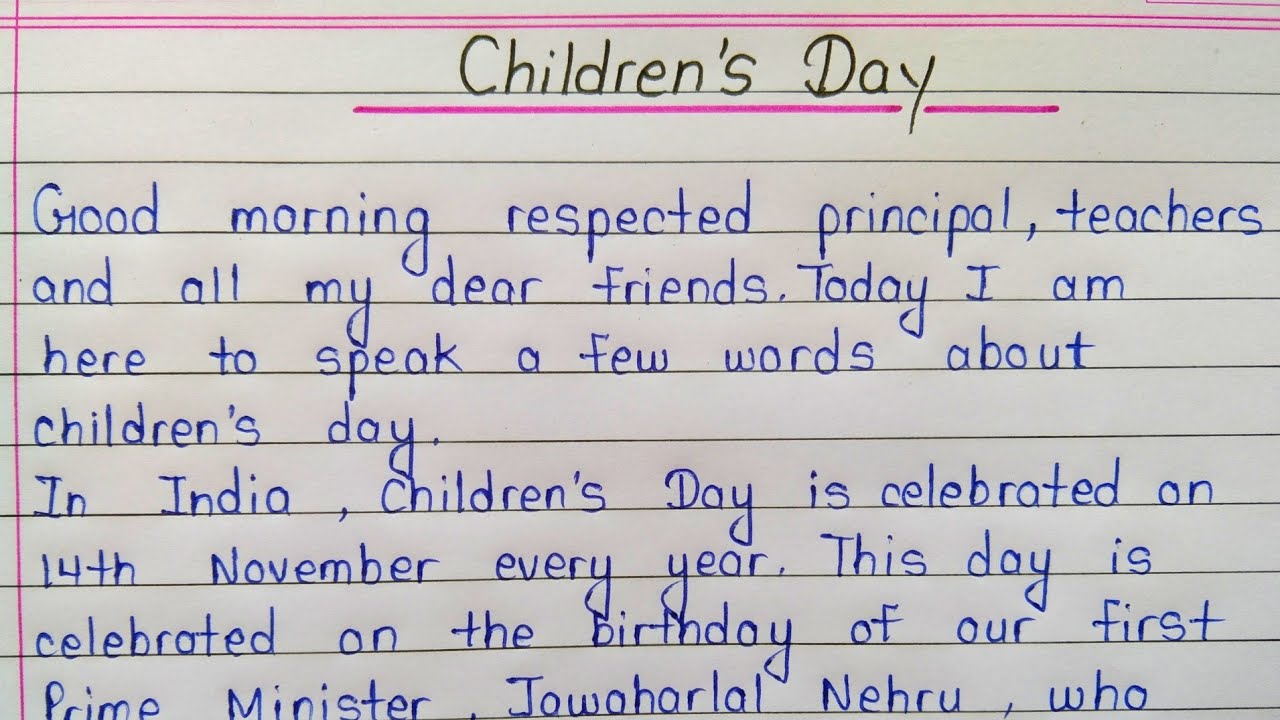 Children's Day
Good morning respected principal, teachers
and all my dear friends. Today I am
here to speak a few words about
children's day.
In India, Children's Day is celebrated on
14th November every year. This day is
celebrated on the birthday of our first
Prime Minister, Jawaharlal Nehru, who